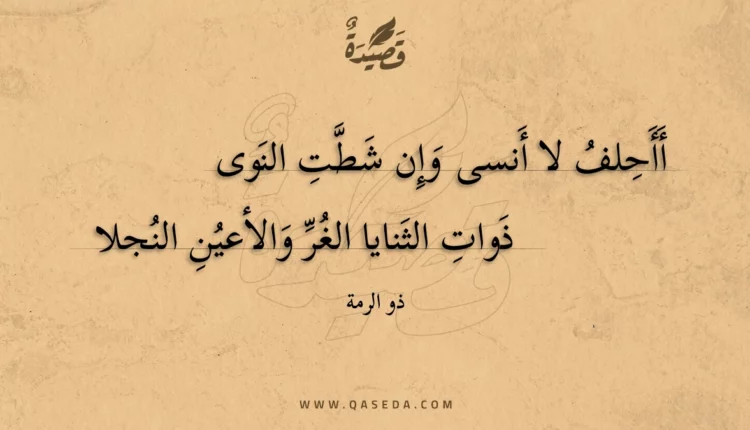 قَصِيدَةٌ
أَأَحِلفُ لا أَنسى وَإِن شَطَّتِ النَوى
ذَواتِ الثَنايا الغُرِّ وَالأعيُنِ النُجلا
ذو الرمة
WWW.QASEDA.COM